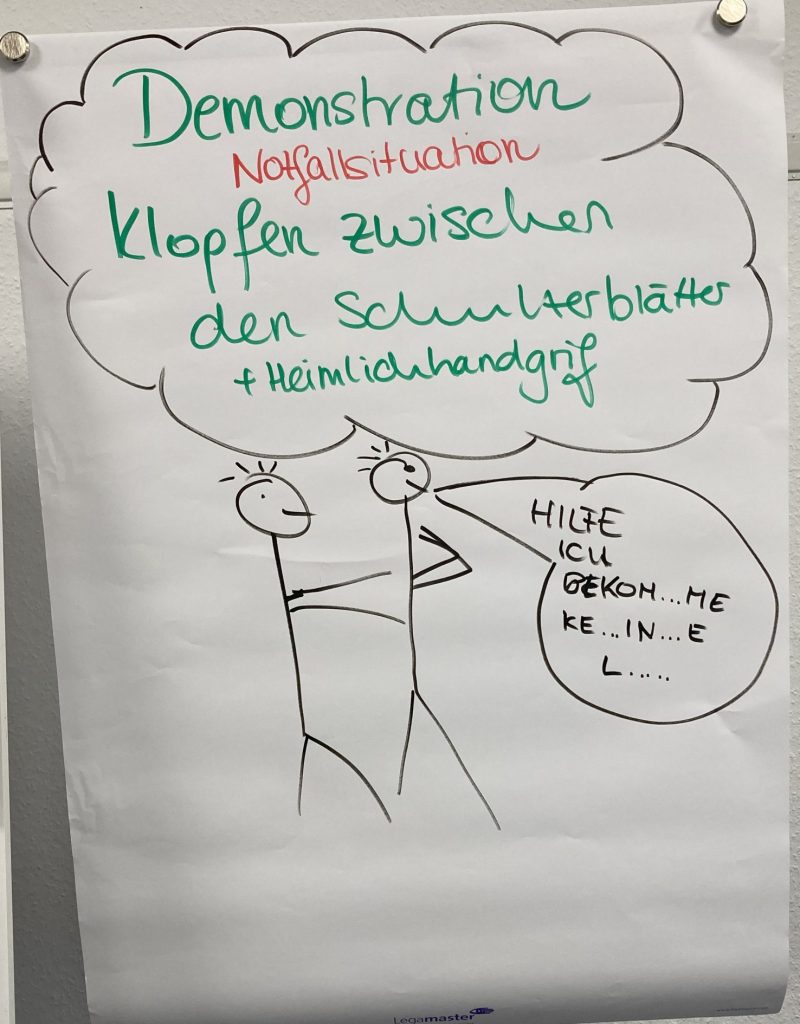 Demonstration
Notfallsituation
Klopfen zwischen
den Schulterblätter
+ Heimlichhandgrif
HILFE
ICH
BEKOM...ME
KE...IN...E
L.....
Legamaster